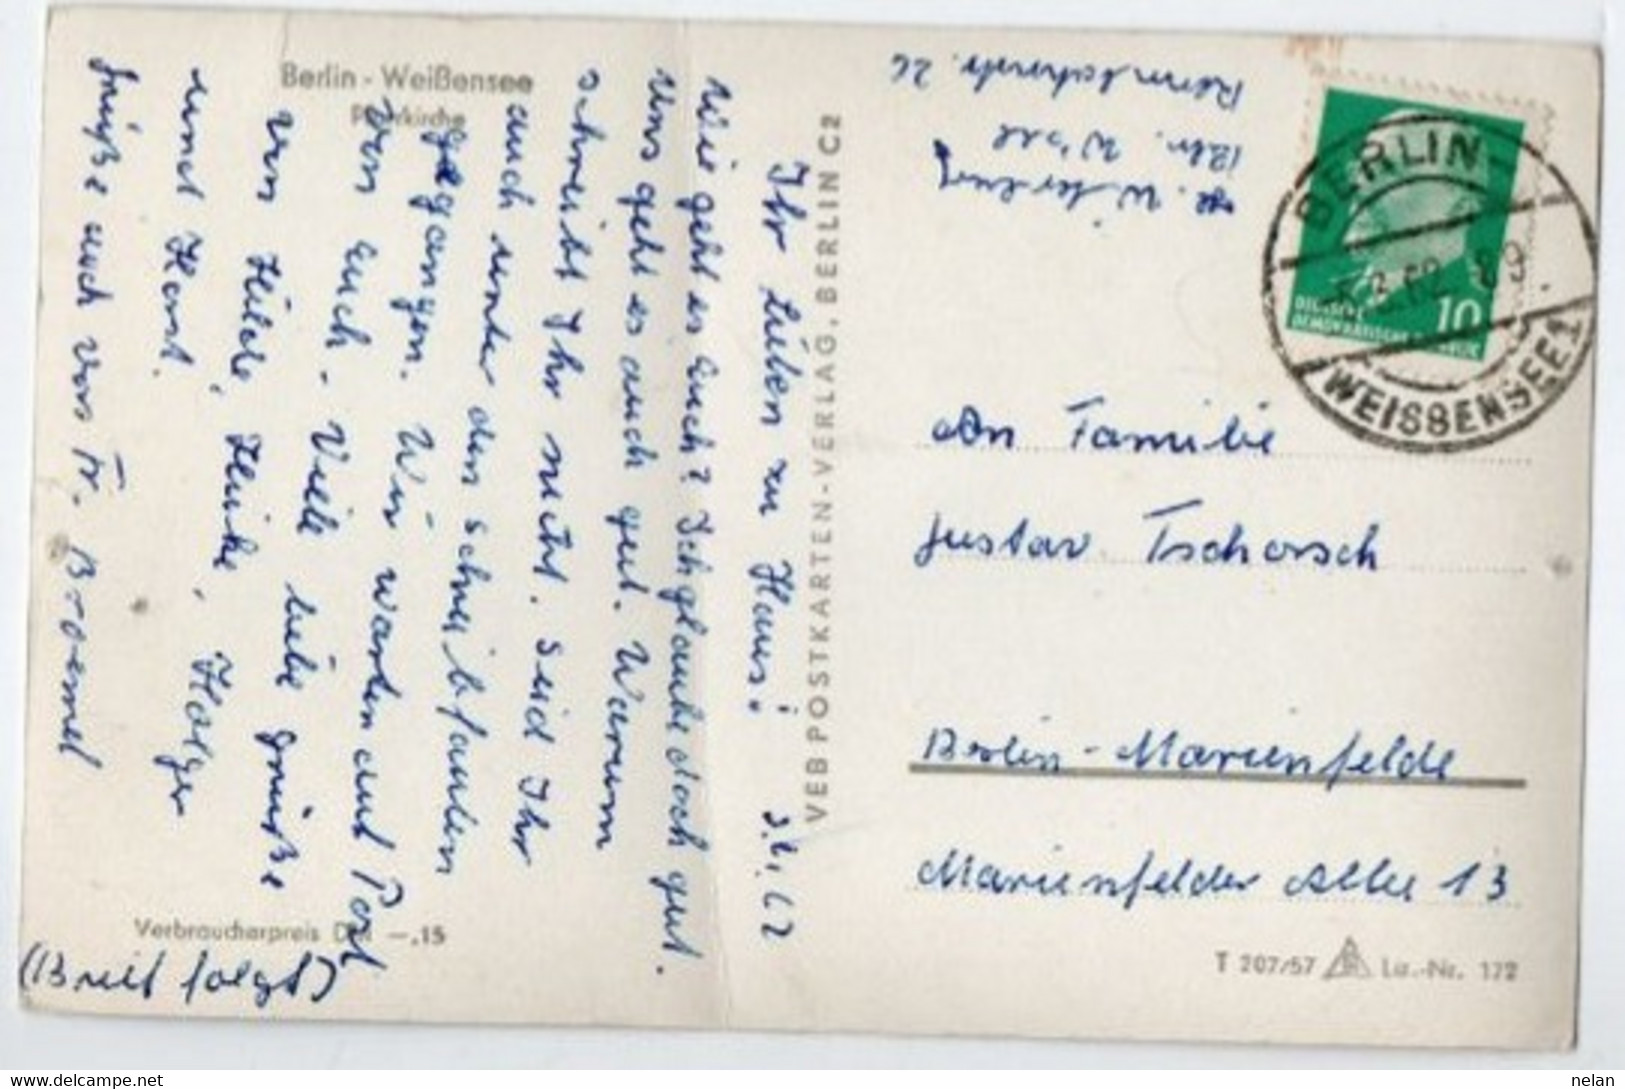 Berlin - Weißensee
Pfarrkirche
3.1.62
Ihr Lieben zu Haus!
Wie geht es Euch? Ich glaube doch gut.
Uns geht es auch gut. Warum
schreibt Ihr nicht. Seid Ihr
auch unter den Schreibfaulen
gegangen. Wir warten auf Post
von Euch. Viele liebe Grüße
von Hilde, Heike, Holger
und Horst.
Grüße auch von Fr. Broemel
(Brief folgt)
Verbraucherpreis DM —,15
VEB POSTKARTEN-VERLAG, BERLIN C2
Bln. W'see
26
BERLIN-
WEISSENSEE 1
DEUTSCHE
DEMOKRATISCHE
10
An Familie
Gustav Tschorsch
Berlin-Marienfelde
Marienfelder Allee 13
T 207/57 Liz.-Nr. 172
nelan
https://www.delcampe.net